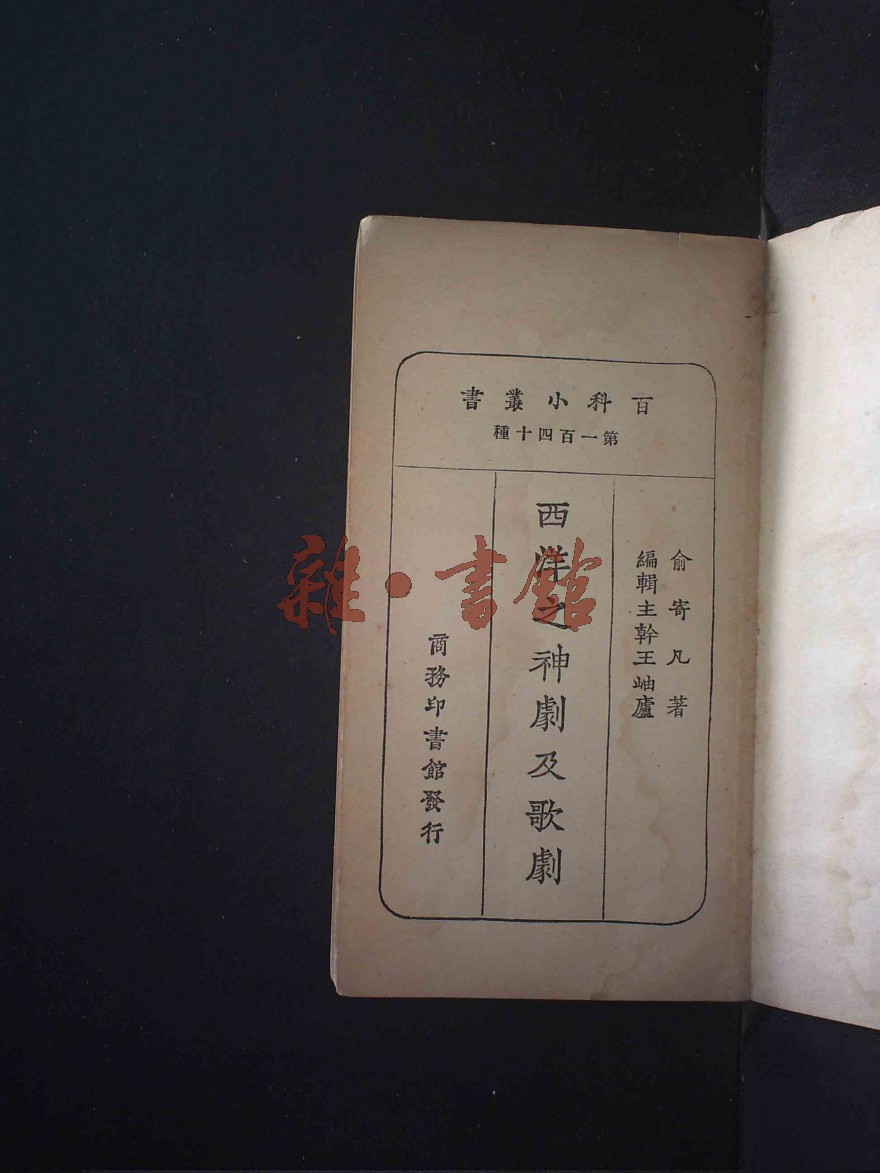 百科小叢書
第一百四十種
俞寄凡著
編輯主幹王岫廬
西洋之神劇及歌劇
商務印書館發行
雜·書館